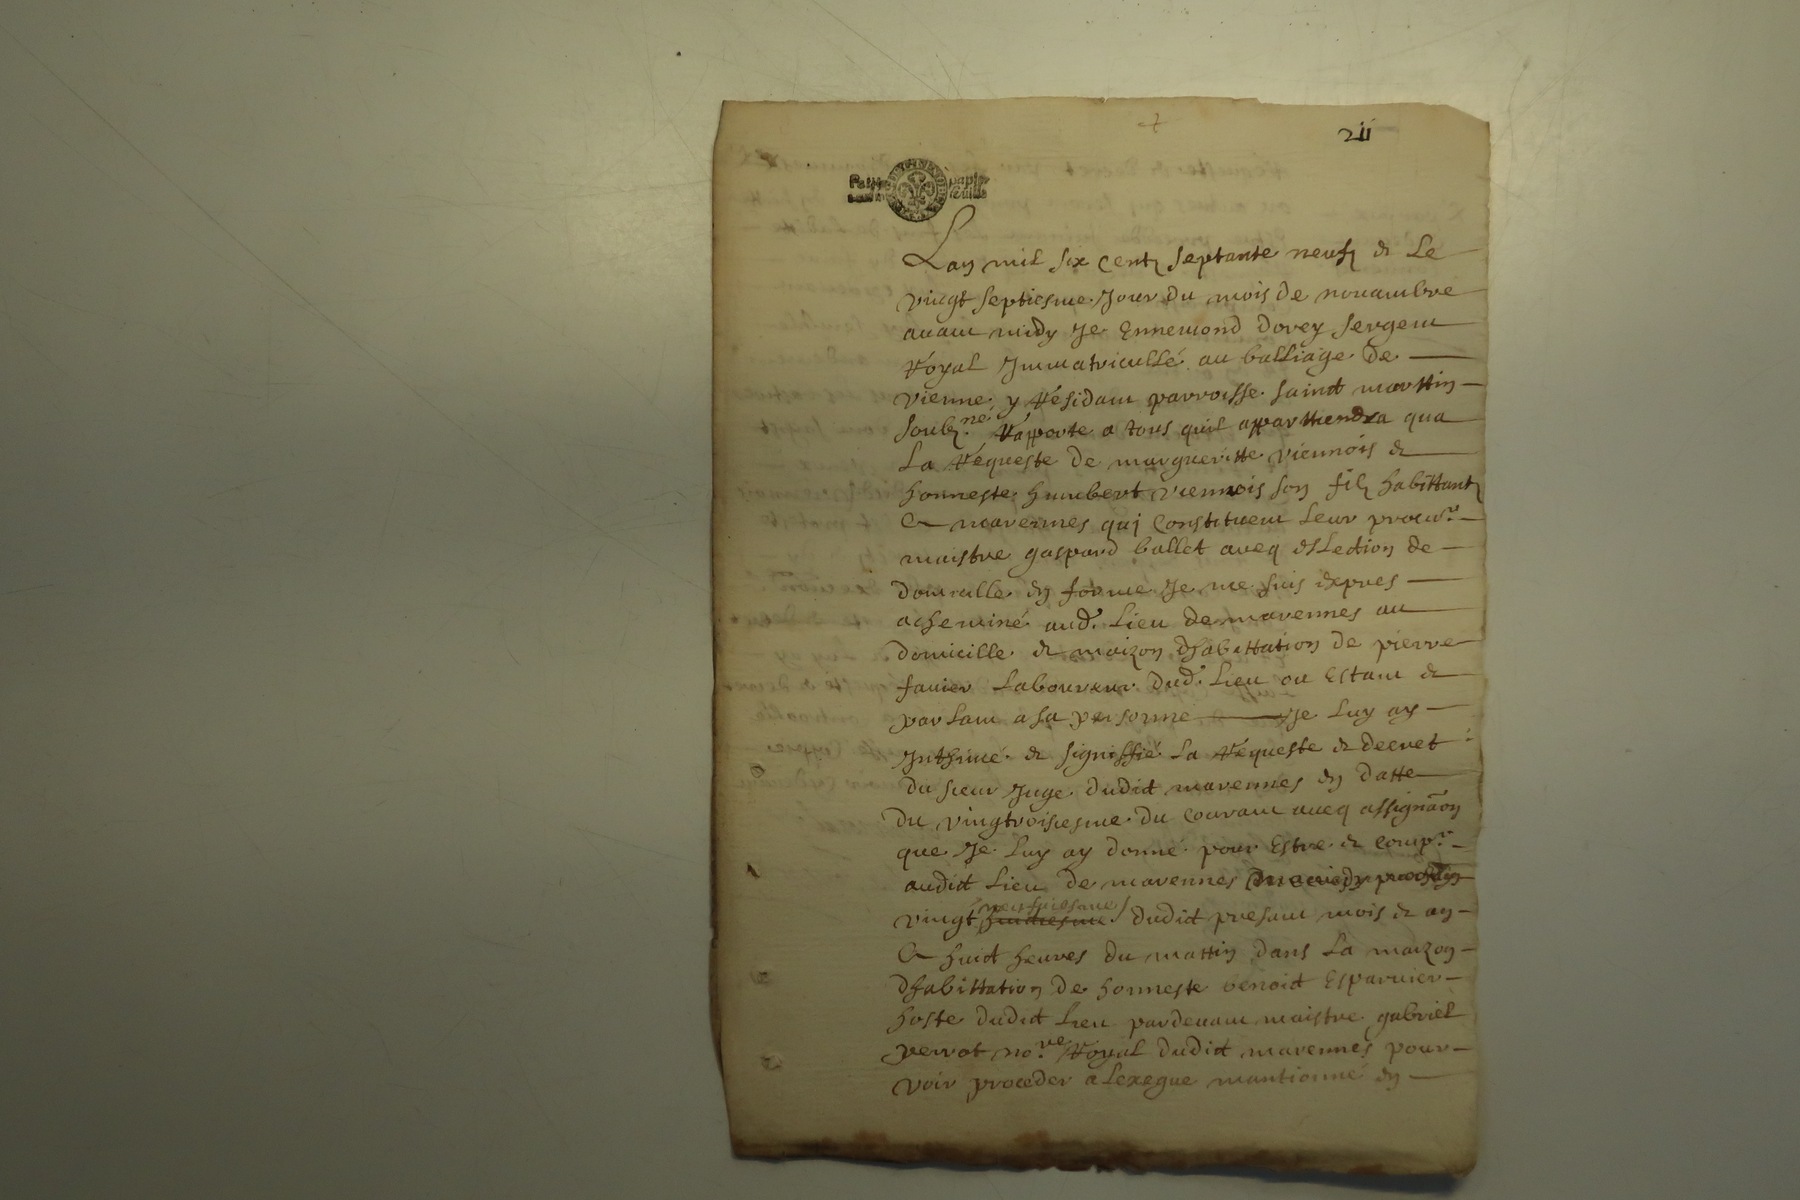 2ii
Petit papier
feuille
Lan mil six centz septante neufz & Le
vingt septiesme Jour du mois de nouambre
auant midy Je Ennemond dorey sergent
Royal Jmmatricullé au balliage de
vienne y Résidant parroisse saind marttin
soubz.né Rapporte a tous quil appartiendra qua
La Réqueste de margueritte viennois &
honneste humbert viennois son filz habittantz
a marennes qui Constituent Leur procur.r
maistre gaspard ballet aveq esLection de
domicille en forme Je me suis expres
acheminé aud. Lieu de marennes au
domicille & maizon dhabittation de pierre
fauier Laboureur dud. Lieu ou Estant &
parlant a sa personne Je Luy ay
Jnthimé & signiffié La Réqueste & decret
du sieur Juge dudit marennes en datte
du vingtroisiesme du Courant aueq assignaon
que Je Luy ay donné pour Estre & Comp.r
audit Lieu de marennes
vingt neufuiesme dudit presant mois & an
a huid heures du mattin dans La maizon
dhabittation de honneste benoid Esparuier
hoste dudit Lieu pardeuant maistre gabriel
perrot no.re Royal dudit marennes pour
voir proceder a Lexegue mantionné en